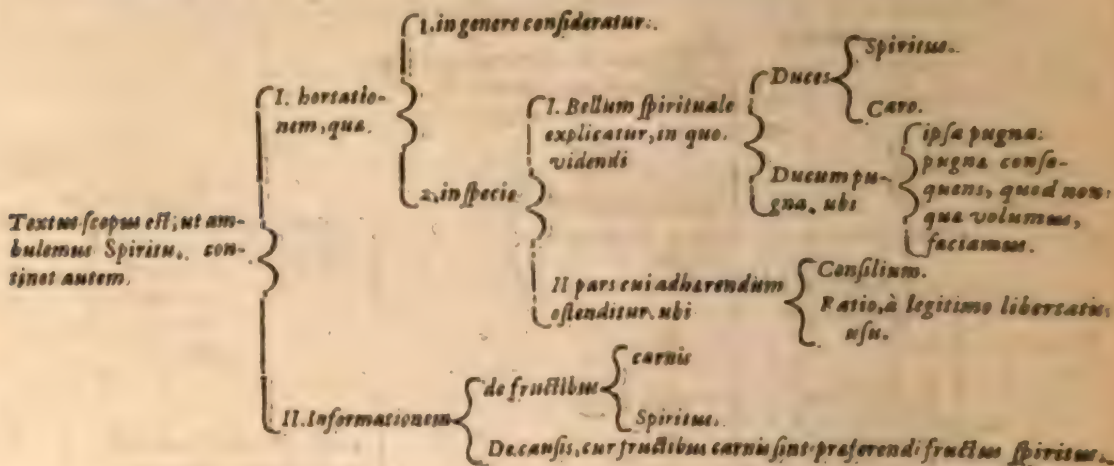 Textus scopus est; ut am-
bulemus Spiritu, con-
tinet autem.
I. hortatio-
nem, qua.
1. in genere consideratur.
2. in specie
I. Bellum spirituale
explicatur, in quo
videndi
Duces
Spiritus.
Caro.
Ducum pu-
gna, ubi
ipsa pugna.
pugna conse-
quens, quod non
quæ volumus,
faciamus.
II pars cui adhærendum
ostenditur. ubi
Consilium.
Ratio, à legitimo libertatis
usu.
II. Informationem
de fructibus
carnis
Spiritus.
De causis, cur fructibus carnis sint præferendi fructus spiritus.